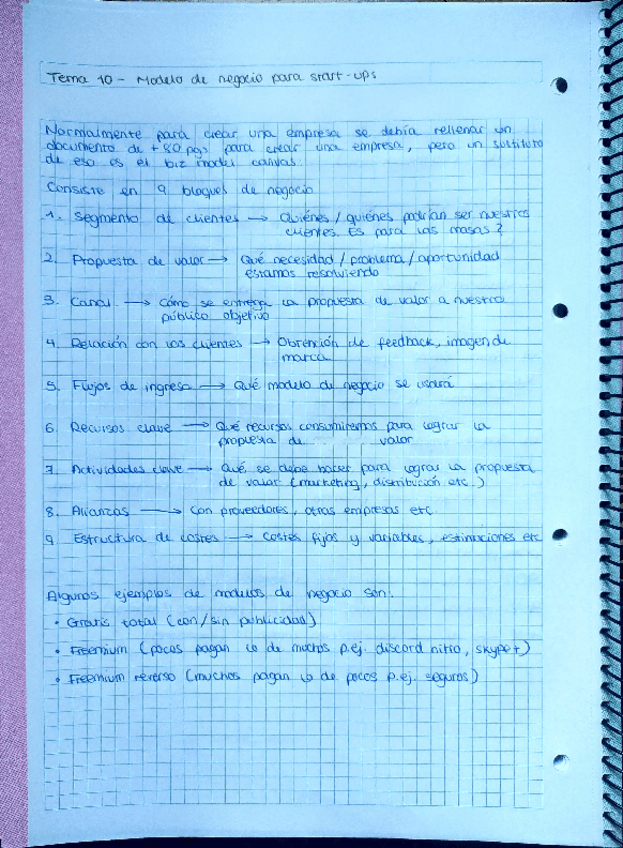 Tema 10 - Modelo de negocio para start-ups
Normalmente para crear una empresa se debía rellenar un
documento de +80 pags para crear una empresa, pero un sustituto
de eso es el biz model canvas.
Consiste en 9 bloques de negocio
1. Segmento de clientes → Quiénes / quiénes podrían ser nuestros
clientes. Es para las masas?
2. Propuesta de valor → Qué necesidad / problema / oportunidad
estamos resolviendo
3. Canal → Cómo se entrega la propuesta de valor a nuestro
público objetivo
4. Relación con los clientes → Obtención de feedback, imagen de
marca
5. Flujos de ingreso → Qué modelo de negocio se usará
6. Recursos clave → Qué recursos consumiremos para lograr la
propuesta de valor
7. Actividades clave → Qué se debe hacer para lograr la propuesta
de valor (marketing, distribución etc.)
8. Alianzas → Con proveedores, otras empresas etc.
9 Estructura de costes → Costes fijos y variables, estimaciones etc
Algunos ejemplos de modelos de negocio son:
• Gratis total (con/sin publicidad)
• Freemium (pocos pagan lo de muchos p.ej. discord nitro, skype+)
• Freemium reverso (muchos pagan lo de pocos p.ej. seguros)